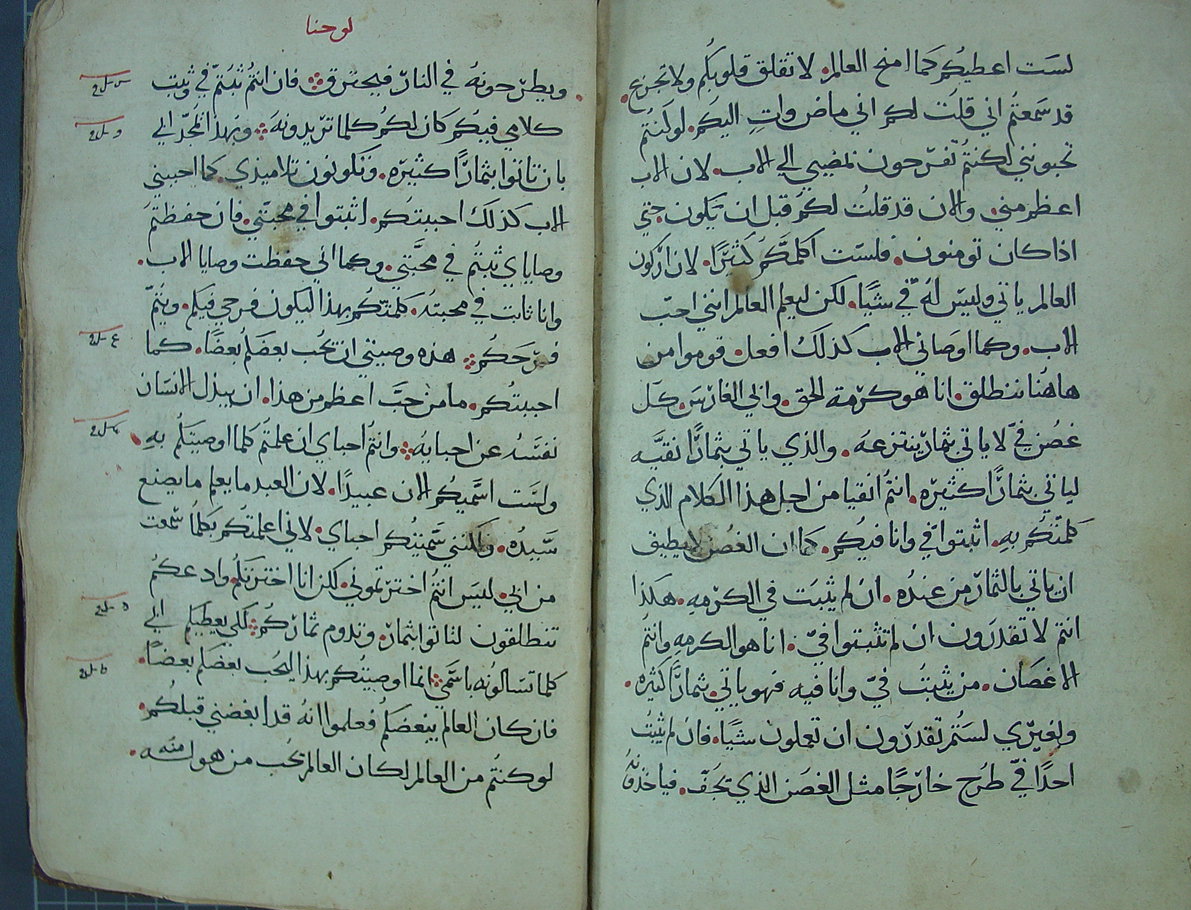 لست اعطيكم كما امنح العالم. لا تقلق قلوبكم ولا تجزع.
قد سمعتم اني قلت لكم اني ماض وات اليكم. لو كنتم
تحبونني لكنتم تفرحون بمضيي الي الاب. لان الاب
اعظم مني. والان قد قلت لكم قبل ان يكون حتي
اذا كان تومنون. فلست اكلمكم كثيرا. لان اركون
العالم ياتي وليس له في شيا. لكن ليعلم العالم انني احب
الاب. وكما اوصاني الاب كذلك افعل. قوموا من
هاهنا ننطلق. انا هو كرمة الحق. وابي الغارس. كل
غصن في لا ياتي بثمار ينتزعه. والذي ياتي بثمارا نقيه
لياتي بثمارا كثيره. انتم انقيا من اجل هذا الكلام الذي
كلمتكم به. اثبتوا في وانا فيكم. كما ان الغصن لا يطيق
ان ياتي بالثمار من عنده. ان لم يثبت في الكرمه. هكذا
انتم لا تقدرون ان لم تثبتوا في. انا هو الكرمه وانتم
الاغصان. من يثبت في وانا فيه فهو ياتي بثمارا كثيره.
وبغيري لستم تقدرون ان تعملون شيا. فان لم يثبت
احدا في طرح خارجا مثل الغصن الذي يجف. فياخذونه
يوحنا
ويطرحونه في النار فيحترق. فان انتم ثبتم في وثبت
كلامي فيكم كان لكم كلما تريدونه. وبهذا يمجد ابي
بان تاتوا بثمارا كثيره. وتكونون تلاميذي. كما احبني
الاب كذلك احببتكم. اثبتوا في محبتي. فان حفظتم
وصاياي ثبتم في محبتي. وكما اني حفظت وصايا الاب.
وانا ثابت في محبته. كلمتكم بهذا ليكون فرحي فيكم. ويتم
فرحكم. هذه وصيتي ان يحب بعضكم بعضا. كما
احببتكم. ما من حب اعظم من هذا. ان يبذل الانسان
نفسه عن احبايه. وانتم احباي ان عملتم كلما اوصيتكم به
ولست اسميكم الان عبيدا. لان العبد ما يعلم ما يصنع
سيده. ولكنني سميتكم احباي. لاني اعلمتكم بكلما سمعت
من ابي. ليس انتم اخترتموني. لكن انا اخترتكم. وادعكم
تنطلقون لتاتوا بثمار. وتدوم ثماركم. لكي يعطيكم ابي
كلما تسالونه باسمي. انما اوصيتكم بهذا ليحب بعضكم بعضا.
فان كان العالم يبغضكم فعلموا انه قد ابغضني قبلكم.
لو كنتم من العالم لكان العالم يحب من هو منه.